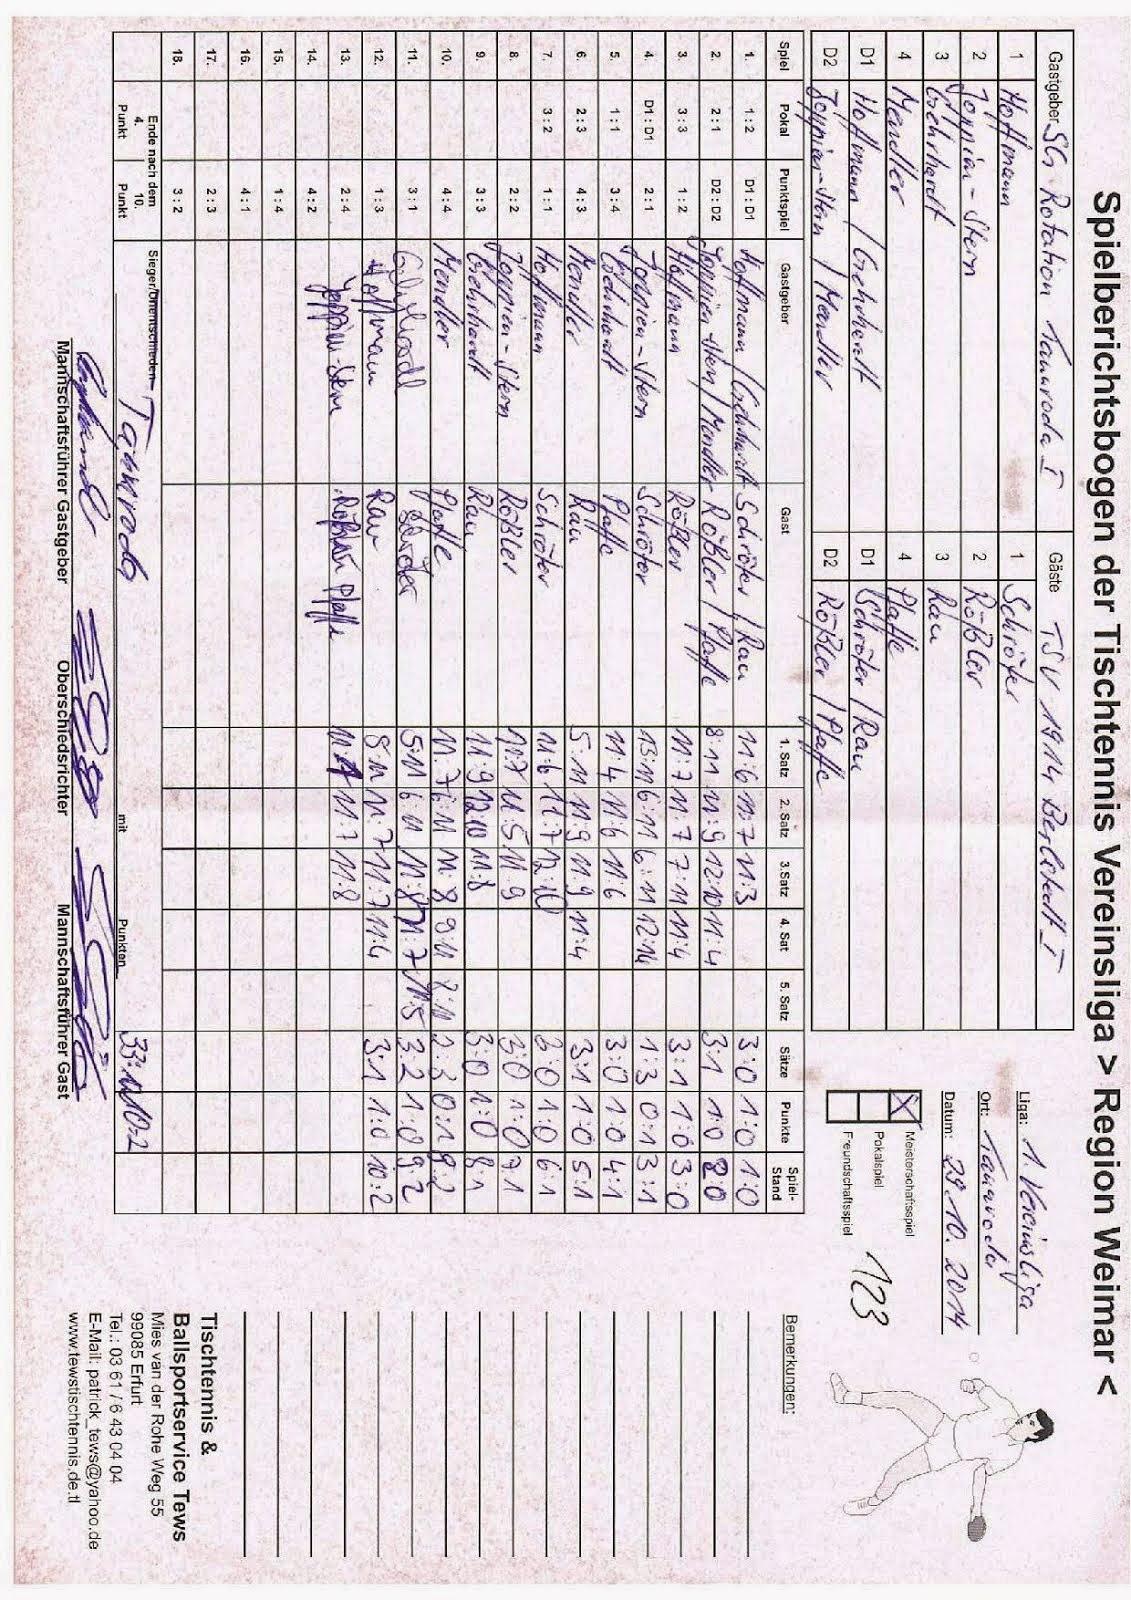 Spielberichtsbogen der Tischtennis Vereinsliga > Region Weimar <
Gastgeber SG Rotation Tannroda I Gäste TSV 1914 Berlstedt I
1 Hoffmann 1 Schröter
2 Joppien-Stern 2 Rößler
3 Gerhardt 3 Rau
4 Mendler 4 Pfaffe
D1 Hoffmann / Gerhardt D1 Schröter / Rau
D2 Joppien-Stern / Mendler D2 Rößler / Pfaffe
Liga: 1. Vereinsliga
Ort: Tannroda
Datum: 29.10.2014
X Meisterschaftsspiel
Pokalspiel
Freundschaftsspiel
123
Spiel Pokal Punktspiel Gastgeber Gast 1. Satz 2. Satz 3. Satz 4. Sat 5. Satz Sätze Punkte Spiel-Stand
1. 1 : 2 D1 : D1 Hoffmann / Gerhardt Schröter / Rau 11:6 11:7 11:3 3:0 1:0 1:0
2. 2 : 1 D2 : D2 Joppien-Stern / Mendler Rößler / Pfaffe 8:11 11:9 12:10 11:4 3:1 1:0 2:0
3. 3 : 3 1 : 2 Hoffmann Rößler 11:7 11:7 7:11 11:4 3:1 1:0 3:0
4. D1 : D1 2 : 1 Joppien-Stern Schröter 13:11 6:11 6:11 12:14 1:3 0:1 3:1
5. 1 : 1 3 : 4 Gerhardt Pfaffe 11:4 11:6 11:6 3:0 1:0 4:1
6. 2 : 3 4 : 3 Mendler Rau 5:11 11:9 11:9 11:4 3:1 1:0 5:1
7. 3 : 2 1 : 1 Hoffmann Schröter 11:6 11:7 12:10 3:0 1:0 6:1
8. 2 : 2 Joppien-Stern Rößler 11:7 11:5 11:9 3:0 1:0 7:1
9. 3 : 3 Gerhardt Rau 11:9 12:10 11:8 3:0 1:0 8:1
10. 4 : 4 Mendler Pfaffe 11:7 6:11 11:8 9:11 2:3 0:1 8:2
11. 3 : 1 Gerhardt Schröter 5:11 6:11 11:8 11:7 11:5 3:2 1:0 9:2
12. 1 : 3 Hoffmann Rau 8:11 11:7 11:7 11:4 3:1 1:0 10:2
13. 2 : 4 Joppien-Stern Pfaffe 11:7 11:8
14. 4 : 2
15. 1 : 4
16. 4 : 1
17. 2 : 3
18. 3 : 2
Ende nach dem
4. Punkt 10. Punkt
Sieger/Unentschieden Tannroda mit Punkten 10:2
Mannschaftsführer Gastgeber Oberschiedsrichter Mannschaftsführer Gast
Bemerkungen:
Tischtennis &
Ballsportservice Tews
Mies van der Rohe Weg 55
99085 Erfurt
Tel.: 03 61 / 6 43 04 04
E-Mail: patrick_tews@yahoo.de
www.tewstischtennis.de.tl